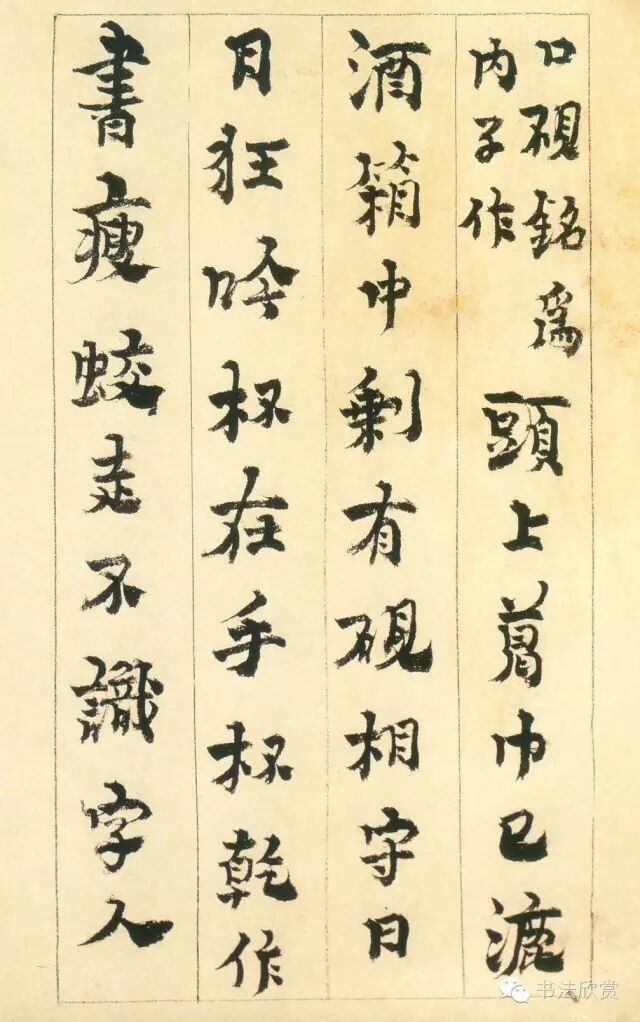 口砚銘爲
内子作
頭上葛巾已漉
酒箱中剩有硯相守日
月狂吟杯在手杯乾作
書瘦蛟走不識字人
书法欣赏